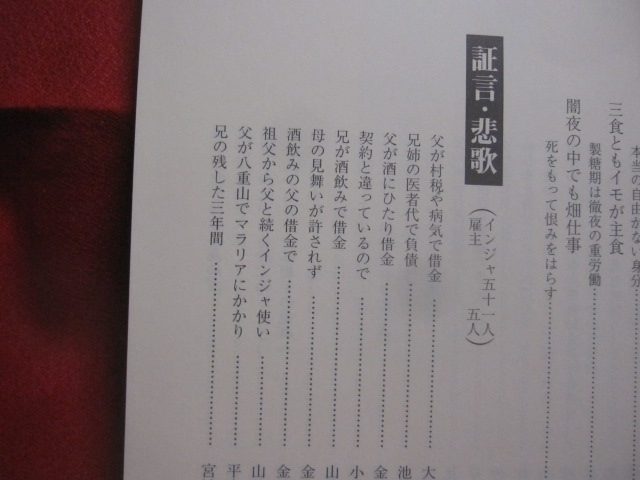 本当の自由がない身分
三食ともイモが主食
製糖期は徹夜の重労働
闇夜の中でも畑仕事
死をもって恨みをはらす
証言・悲歌
(インジャ五十一人
雇主 五人)
父が村税や病気で借金 大
兄姉の医者代で負債 池
父が酒にひたり借金 金
契約と違っているので 小
兄が酒飲みで借金 山
母の見舞いが許されず 金
酒飲みの父の借金で 金
祖父から父と続くインジャ使い 山
父が八重山でマラリアにかかり 平
兄の残した三年間 宮